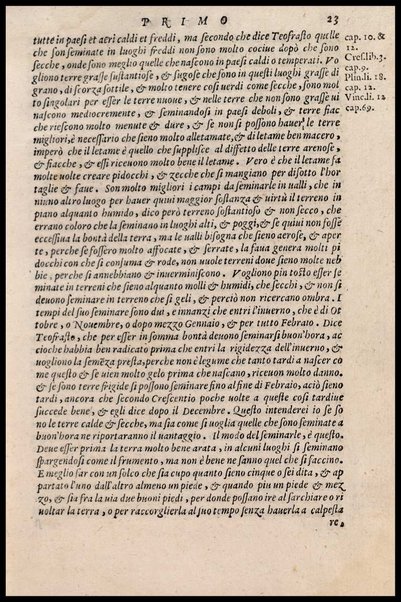 PRIMO 23
tutte in paesi et aeri caldi et freddi, ma secondo che dice Teofrasto quelle
che son seminate in luoghi freddi non sono molto cociue dopò che sono
secche, onde sono meglio quelle che nascono in paesi caldi o temperati. Vo
gliono terre grasse sustantiose, & sugose che sono in questi luoghi grasse di
grano, di scorza sottile, & molto tenere cosi uerdi come secche, sono mol
to singolari per esser le terre nuoue, & nelle terre che non sono grasse ui
nascono mediocremente, & seminandosi in paesi deboli, & terre fiac
che riescono molto menute & dure, & se non si possono hauer le terre
migliori, è necessario che sieno molto alletamate, & di letame ben macero,
imperò che il letame è quello che supplisce al diffetto delle terre arenose,
& fiacche, & essi riceuono molto bene il letame. Vero è che il letame fa
molte uolte creare pidocchi, & zecche che si mangiano per disotto l'hor
taglie & faue. Son molto migliori i campi da seminarle in ualli, che in
niuno altro luogo per hauer quiui maggior sostanza & uirtù il terreno in
piano alquanto humido, dico però terreno sostantioso & non secco, che
errano coloro che la seminano in luoghi alti, & poggi, & se quiui non fosse
eccessiua la bontà della terra, ma le ualli bisogna che sieno aerose, & aper
te, perche se fossero molto affocate, & serrate, la faua genera molti pi
docchi con che si consuma & rode, non uuole terreni doue sieno molte neb
bie, perche si annebbiano & inuerminiscono. Vogliono piu tosto esser se
minate in terreni che sieno alquanto molli & humidi, che secchi, & non si
deuono seminare in terreno che si geli, & perciò non ricercano ombra. I
tempi del suo seminare sono dui, e innanzi che entri l'inuerno, che è di Ot
tobre, o Nouembre, o dopo mezzo Gennaio, & per tutto Febraio. Dice
Teofrasto, che per esser in somma bontà deuono seminarsi buon'hora, ac
cioche habbia ben radicato prima che entri la rigidezza dell'inuerno, &
uogliono la semẽza presta, perche non è legume che tanto tardi a nascer co
me questo & se uien molto gelo prima che nascano, riceuon molto danno.
& se sono terre frigide si possono seminare fino al fine di Febraio, aciò sieno
tardi, ancora che secondo Crescentio poche uolte a queste cosi tardiue
succede bene, & egli dice dopo il Decembre. Questo intenderei io se so
no le terre calde & secche, ma sia come si uoglia quelle che sono seminate a
buon'hora ne riportaranno il uantaggio. Il modo del seminarle, è questo.
Deue esser prima la terra molto bene arata, in alcuni luoghi si seminano
spargendosi come il frumento, ma non è bene ne sanno quel che si faccino.
E meglio far con un solco che sia cupo quanto sieno cinque o sei dita, & ap
partato l'uno dall'altro almeno un piede, & quando piu un piede & mez
zo, & sia fra la uia due buoni piedi, per donde possano ire al sarchiare o ri
uoltar la terra, o per raccoglierla al suo tempo senza hauerla a calpesta
re.
cap. 10. &
12.
Cres.lib.3.
cap.9.
Plin.li. 18.
cap. 12.
Vinc.li. 12
cap.69.